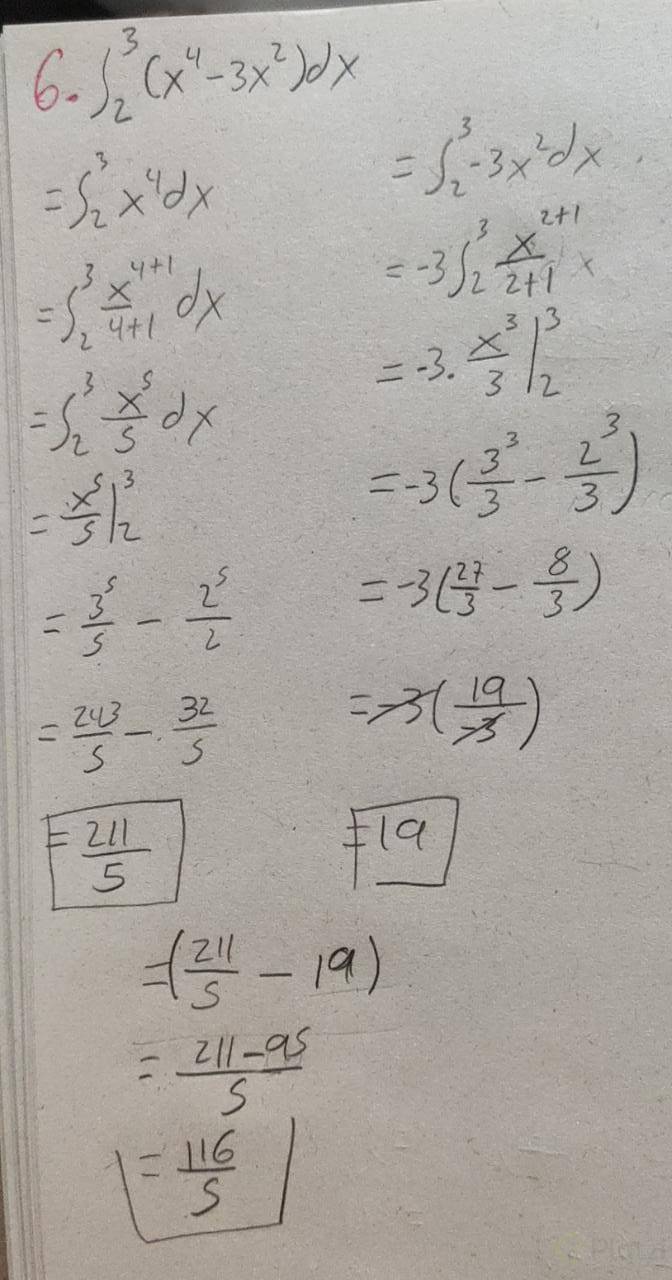 6. ∫₂³ (x⁴ - 3x²)dx
= ∫₂³ x⁴dx
= ∫₂³ x⁴⁺¹/4+1 dx
= ∫₂³ x⁵/5 dx
= x⁵/5 |₂³
= 3⁵/5 - 2⁵/2
= 243/5 - 32/5
= 211/5
= ∫₂³ -3x²dx
= -3∫₂³ x²⁺¹/2+1 x
= -3 · x³/3 |₂³
= -3(3³/3 - 2³/3)
= -3(27/3 - 8/3)
= -3(19/-3)
= 19
= (211/5 - 19)
= 211-95/5
= 116/5
Platzi